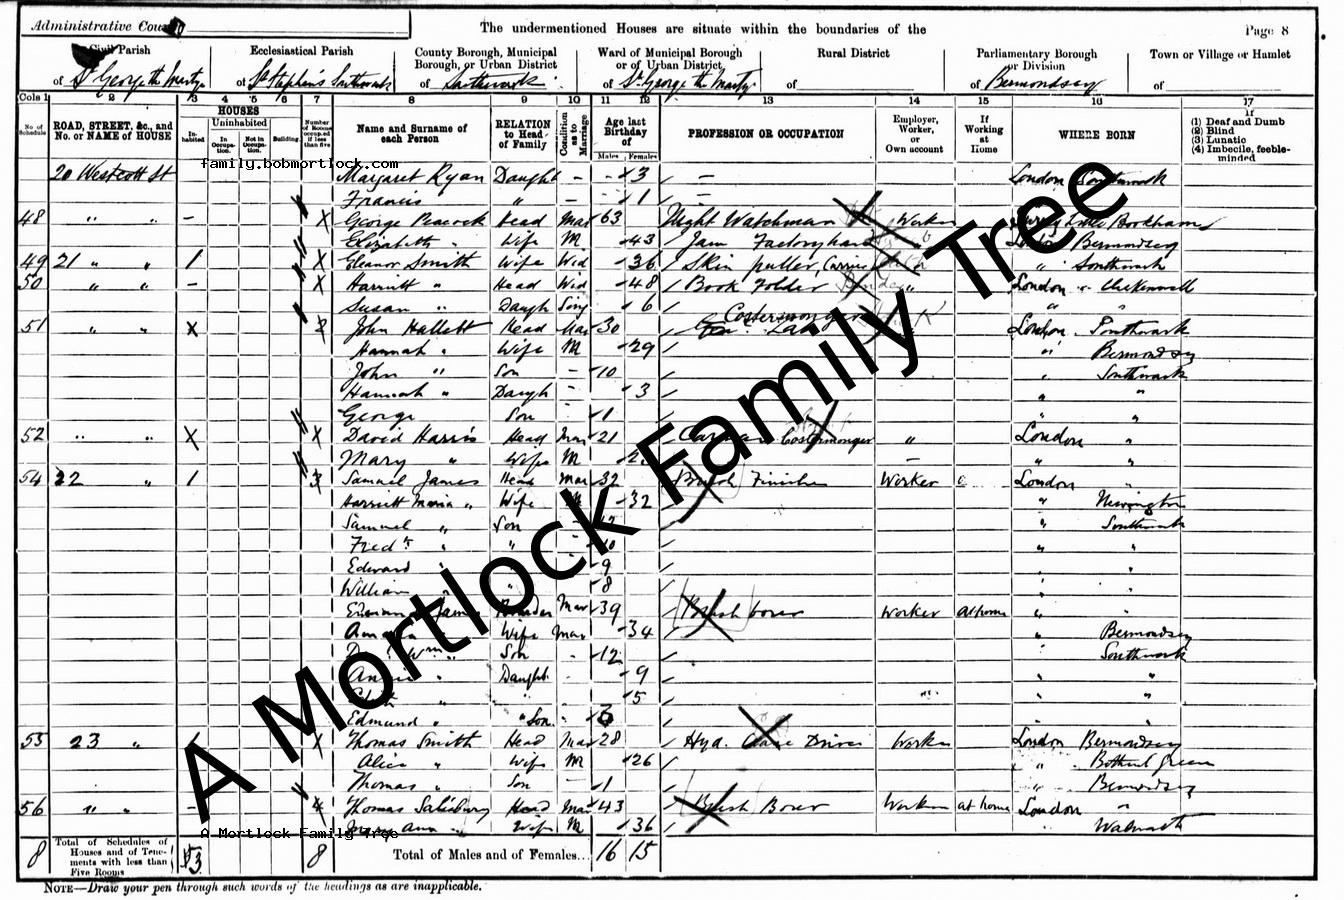 Administrative County
The undermentioned Houses are situate within the boundaries of the
Page 8
Civil Parish
of St George the Martyr
Ecclesiastical Parish
of St Stephen's Southwark
County Borough, Municipal Borough, or Urban District
of Southwark
Ward of Municipal Borough or of Urban District
of St George the Martyr
Rural District
of
Parliamentary Borough or Division
of Bermondsey
Town or Village or Hamlet
of
Cols 1 2 3 4 5 6 7 8 9 10 11 12 13 14 15 16 17
No of Schedule
ROAD, STREET, &c., and No. or NAME of HOUSE
HOUSES
Inhabited
Uninhabited
In Occupation.
Not in Occupation.
Building
Number of Rooms occupied if less than five
Name and Surname of each Person
RELATION to Head of Family
Condition as to Marriage
Age last Birthday of
Males Females
PROFESSION OR OCCUPATION
Employer, Worker, or Own account
If Working at Home
WHERE BORN
If
(1) Deaf and Dumb
(2) Blind
(3) Lunatic
(4) Imbecile, feeble-minded
family.bobmortlock.com
20 Westcott St Margaret Ryan Daught - 3 - London Southwark
Francis " - 1 -
48 " " - George Peacock Head Mar 63 Night Watchman Worker Surrey Little Bookham
Elizabeth " Wife M 43 Jam Factory hand London Bermondsey
49 21 " " 1 Eleanor Smith Wife Wid 36 Skin puller, Carrier " Southwark
50 " " - Harriett " Head Wid 48 Book Folder London " Clerkenwell
Susan " Daugh Sing 6 " "
Costermonger
51 " " X John Hallett Head Mar 30 London Southwark
Hannah " Wife M 29 " Bermondsey
John " Son - 10 " Southwark
Hannah " Daugh - 3 " "
George Son - 1 " "
52 " " X David Harris Head Mar 21 Carman Costermonger " London "
Mary " Wife M - " "
54 22 " 1 3 Samuel James Head Mar 32 Brush Finisher Worker London "
Harriett Maria " Wife M 32 " Newington
Samuel " Son " Southwark
Fredk " " 10 " "
Edward " 9 " "
William " 8 " "
James Mar 39 Brush borer Worker At home " "
Wife Mar 34 " Bermondsey
Wm " Son - 12 " Southwark
Annie " Daught 9 " "
" 5 " "
Edmund " Son
55 23 " Thomas Smith Head Mar 28 Hyd. Crane Driver Worker London Bermondsey
Alice " Wife M 26 " Bethnal green
Thomas " Son - 1 " Bermondsey
56 " " - Thomas Salisbury Head Mar 43 Brush Borer Worker at home London "
Mary Ann " Wife M 36 Walworth
A Mortlock Family Tree
A Mortlock Family Tree
8 Total of Schedules of Houses and of Tenements with less than Five Rooms 8 Total of Males and of Females... 16 15
NOTE—Draw your pen through such words of the headings as are inapplicable.